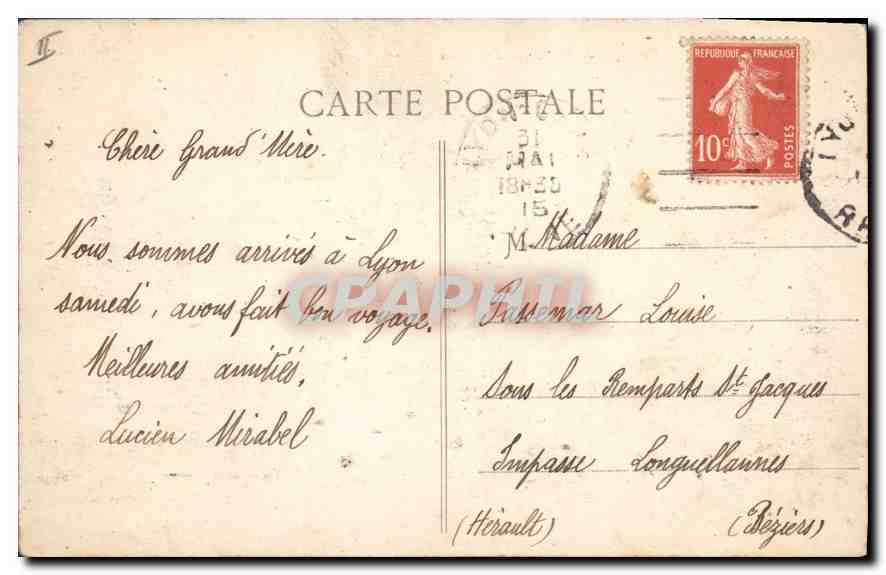 II
CARTE POSTALE
REPUBLIQUE FRANÇAISE
10c
POSTES
31
MAI
18H30
15
Chère Grand'Mère.
Nous sommes arrivés à Lyon
samedi, avons fait bon voyage.
Meilleures amitiés.
Lucien Mirabel
M
Madame
Passemar Louise
Sous les Remparts St Jacques
Impasse Longuellannes
(Hérault) (Béziers)
CPAPHIL